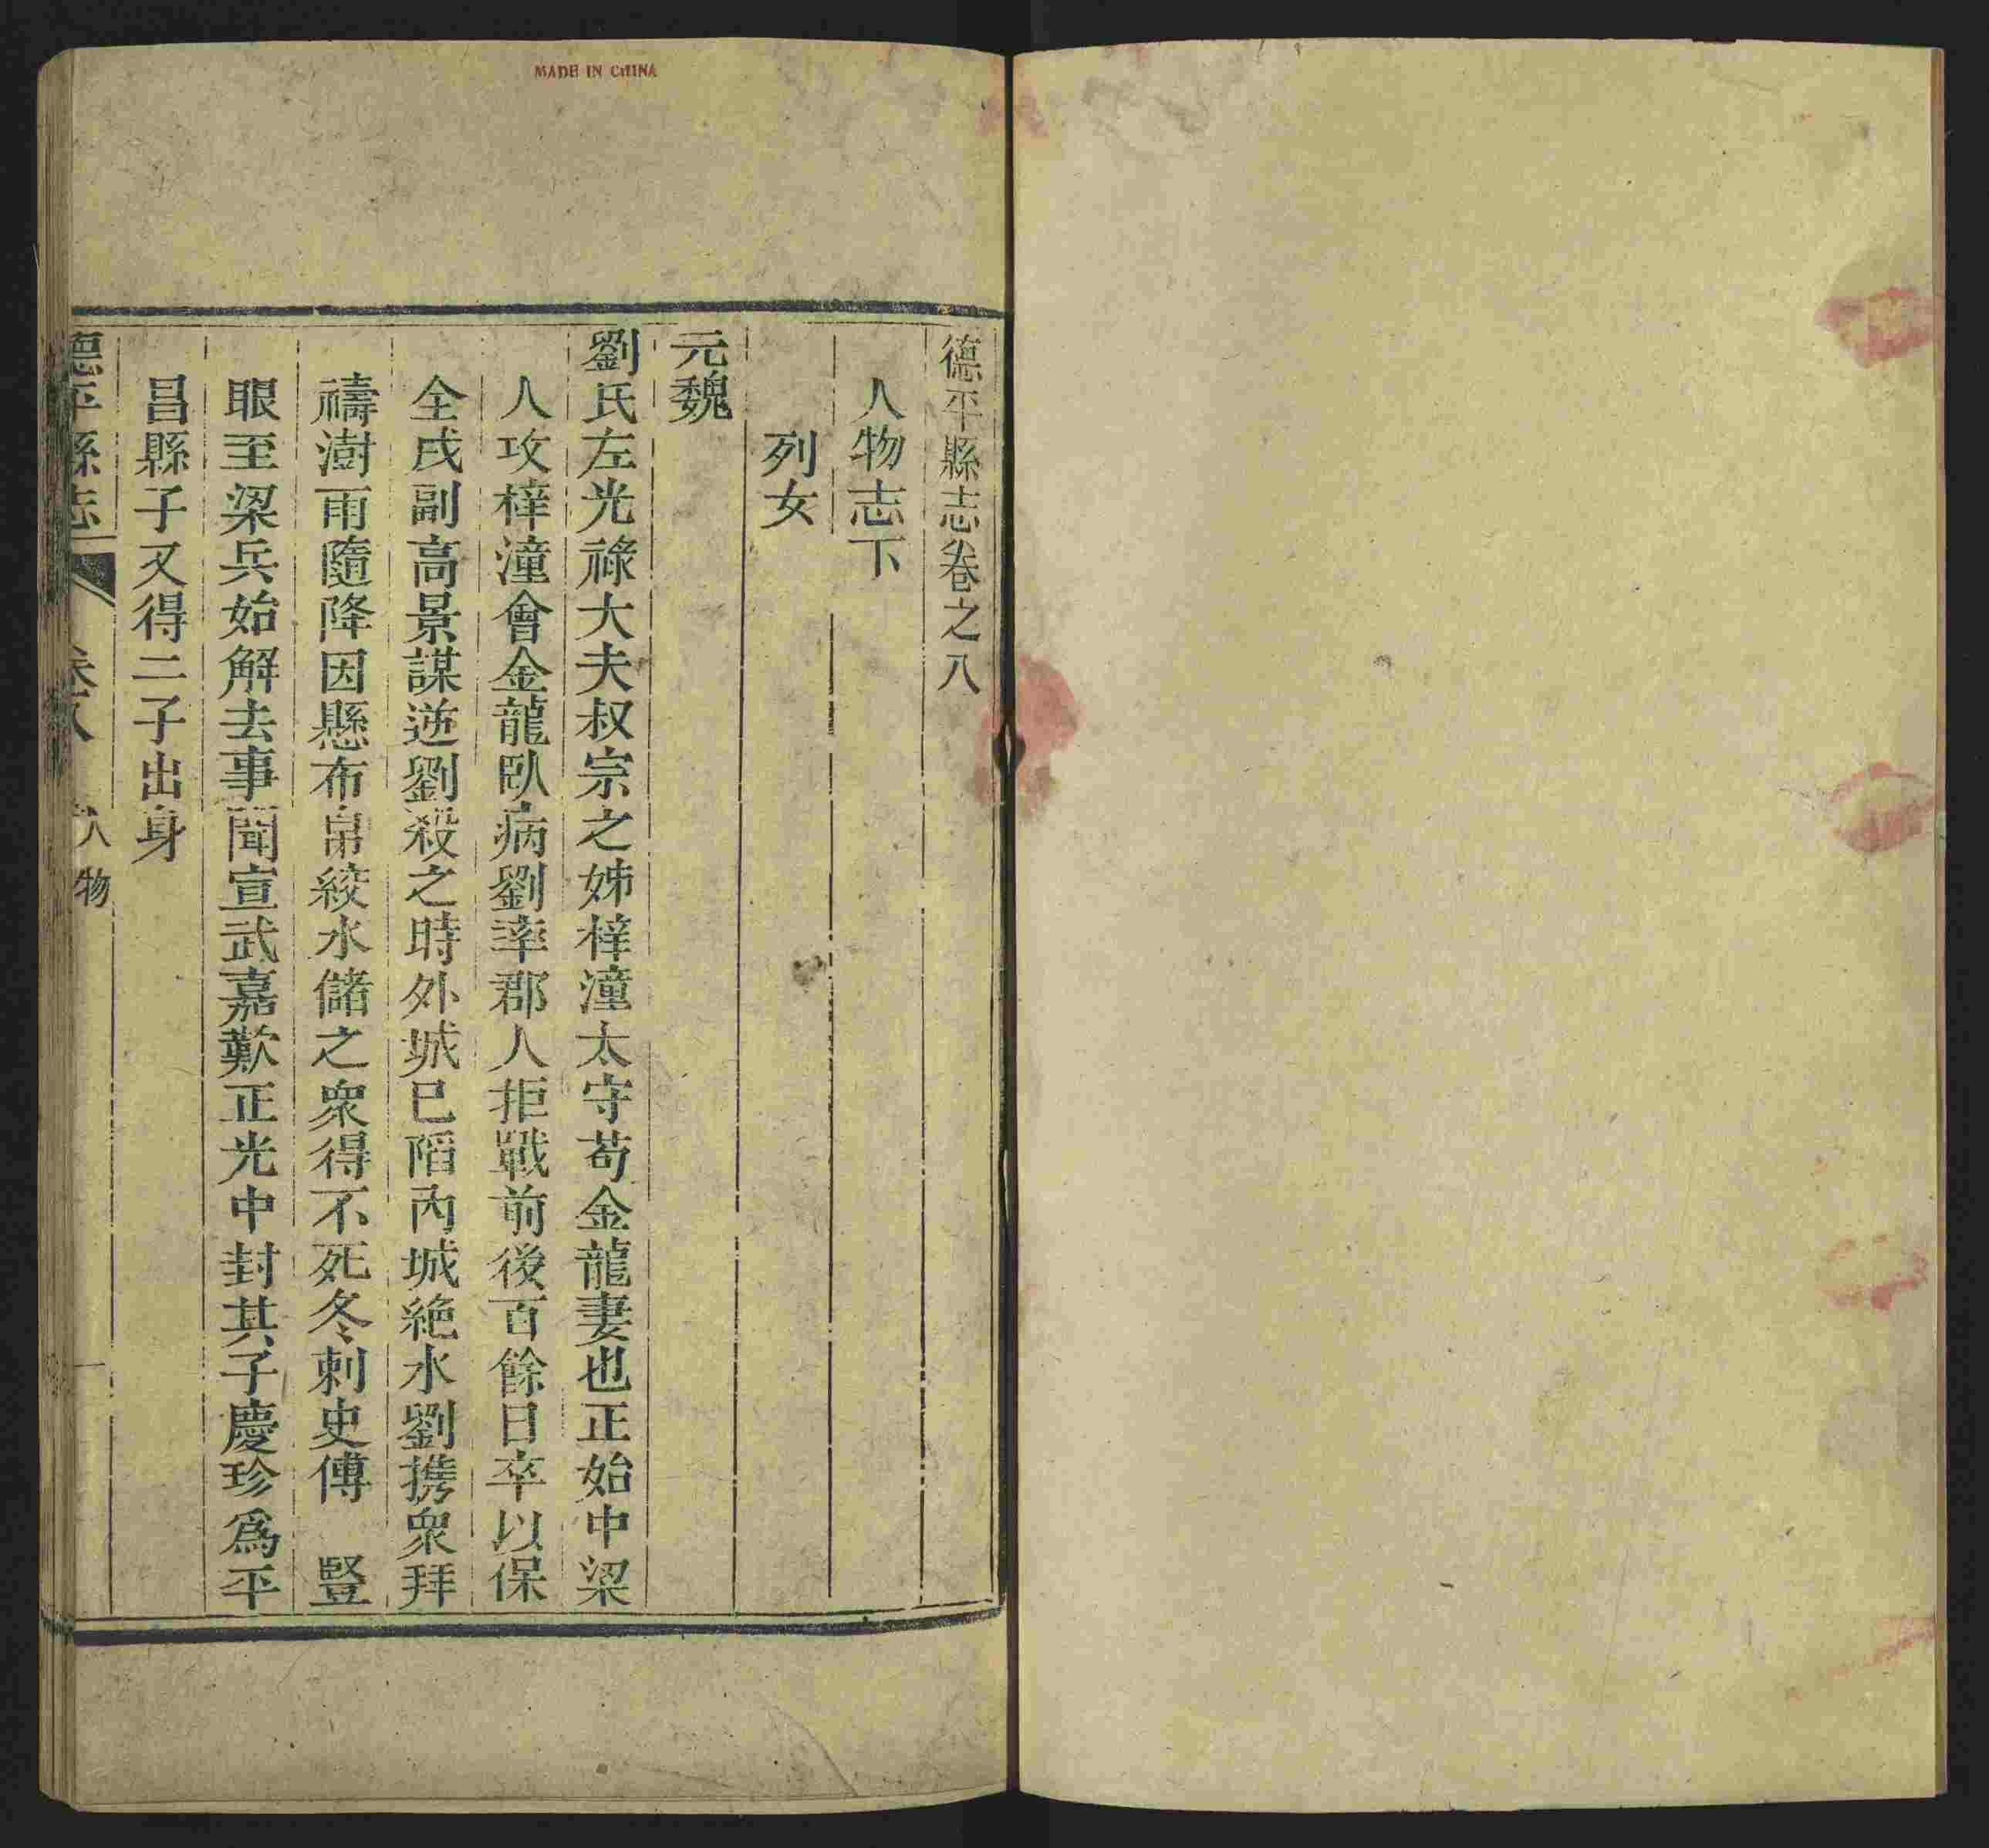 MADE IN CHINA
德平縣志卷之八
人物志下
列女
元魏
劉氏左光祿大夫叔宗之姊梓潼太守苟金龍妻也正始中梁
人攻梓潼會金龍臥病劉率郡人拒戰前後百餘日卒以保
全戌副高景謀逆劉殺之時外城已陷內城絶水劉携衆拜
禱澍雨隨降因懸布帛絞水儲之衆得不死冬刺史傅 豎
眼至梁兵始解去事聞宣武嘉歎正光中封其子慶珍爲平
昌縣子又得二子出身
德平縣志 卷八 人物 一